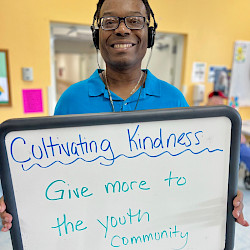 Cultivating Kindness
Give more to
the youth
community